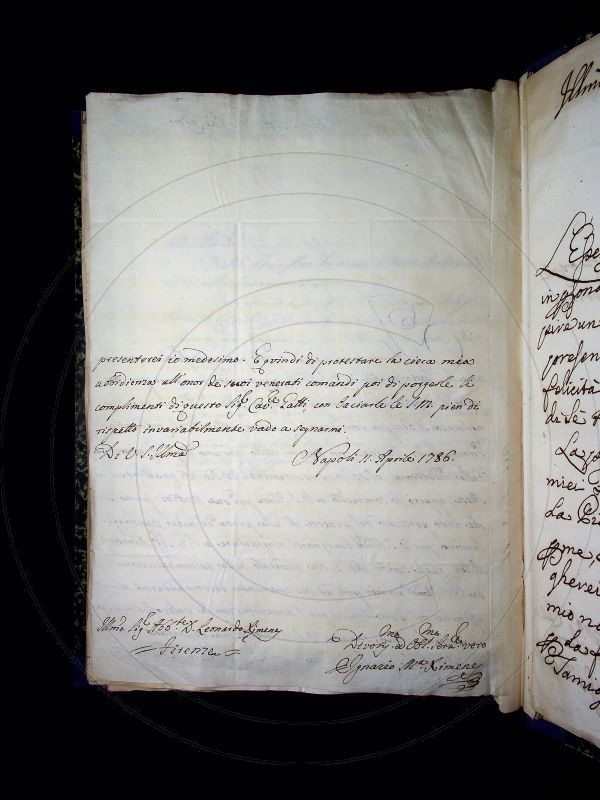 presenterei io medesimo. E quindi di protestare la cieca mia
ubbidienza all'onor de suoi venerati comandi poi di porgerle li
complimenti di questo Sig.r Cav.re Gatti, con baciarle le M. pien di
rispetto invariabilmente vado a segnarmi.
Di V. S. Illma
Napoli 11. Aprile 1786.
Illmo Sig.r Ab.te D. Leonardo Ximenes
Firenze
Divot.mo ed Obl.mo vero
Ignazio M.a Ximenes
Illm
L'Espe
in
pure un
presen
felicità
di Se
La
miei
La
gherei
mio no
La f
Famig